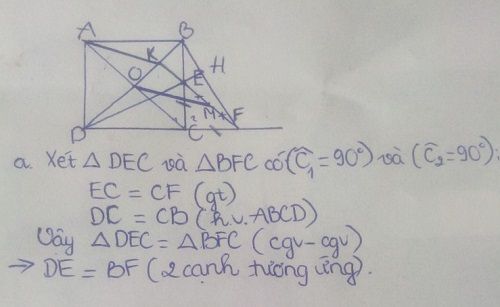 A B
K H
O E
M F
D C 2
a. Xét △ DEC và △BFC có (Ĉ₁ = 90°) và (Ĉ₂ = 90°);
EC = CF (gt)
DC = CB (h.v. ABCD)
Vậy △ DEC = △ BFC (cgv - cgv)
→ DE = BF (2 cạnh tương ứng).